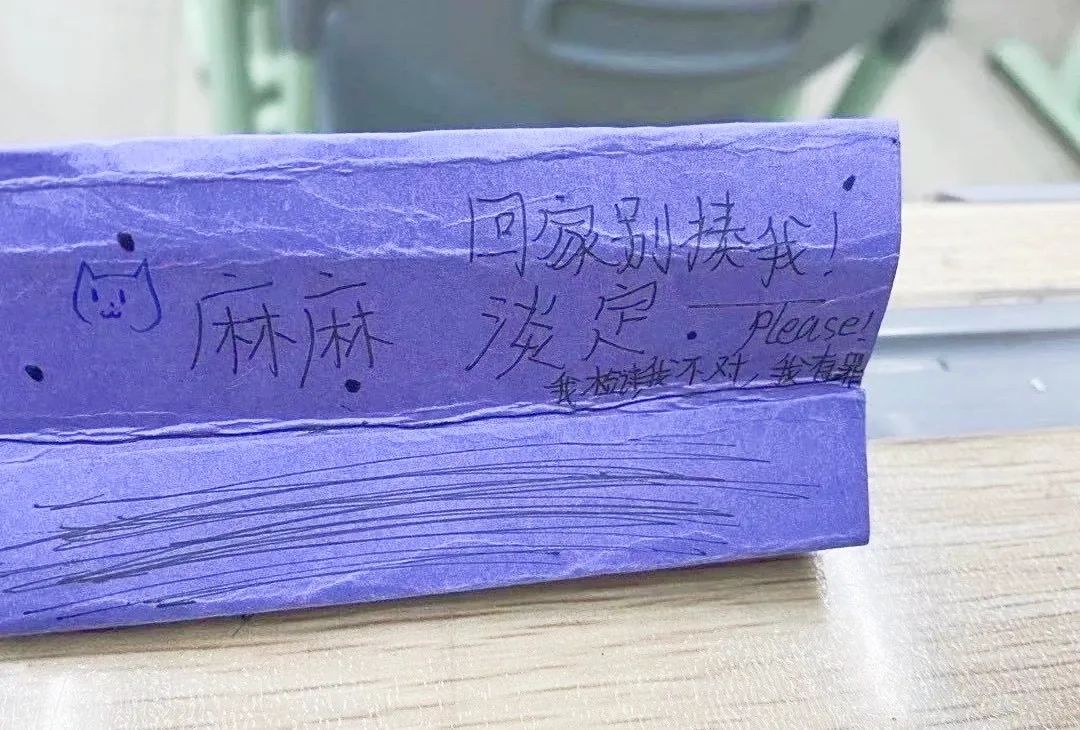 回家别揍我!
麻麻 淡定.
please!
我检讨我不对,我有罪